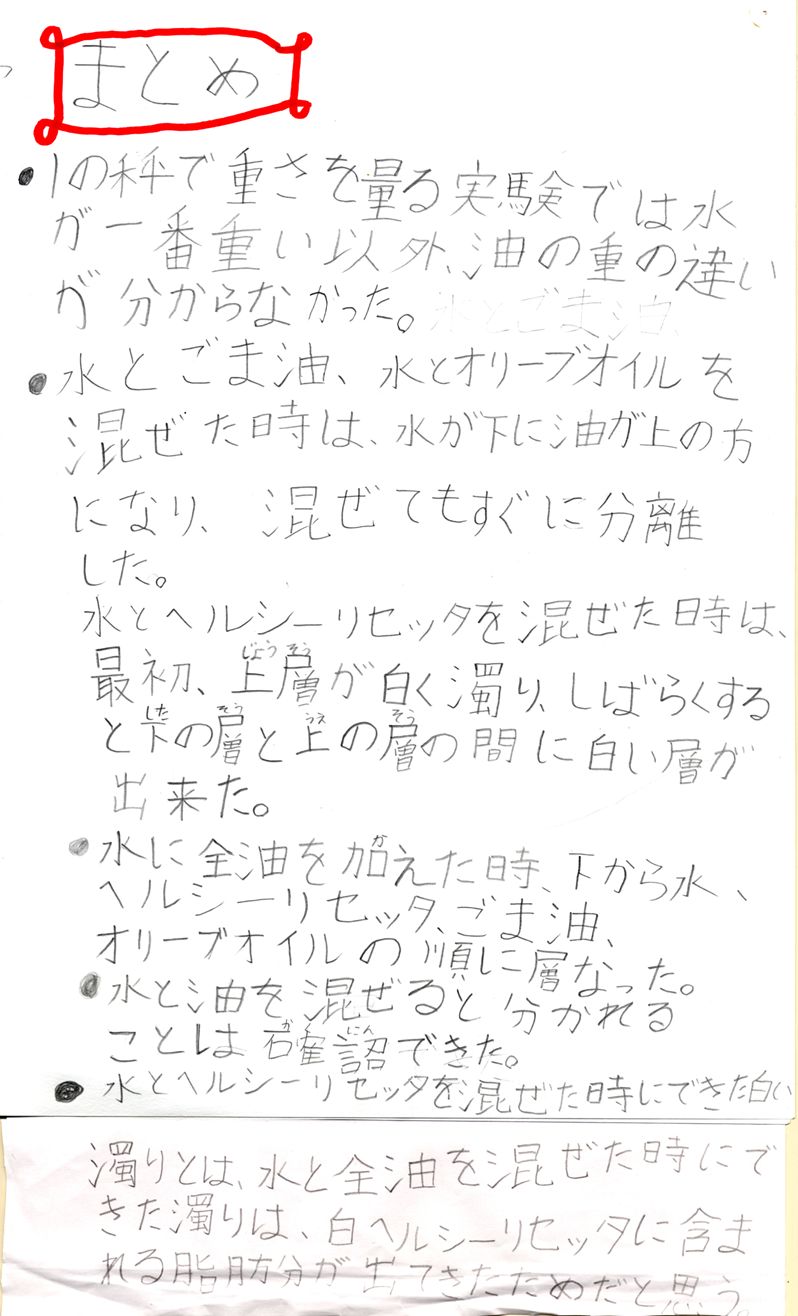 まとめ
●1の秤で重さを量る実験では水
が一番重い以外、油の重の違い
が分からなかった。水とごま油、
●水とごま油、水とオリーブオイルを
混ぜた時は、水が下に油が上の方
になり、混ぜてもすぐに分離
した。
水とヘルシーリセッタを混ぜた時は、
最初、上層が白く濁り、しばらくする
と下の層と上の層の間に白い層が
出来た。
●水に全油を加えた時、下から水、
ヘルシーリセッタ、ごま油、
オリーブオイルの順に層なった。
●水と油を混ぜると分かれる
ことは確認できた。
●水とヘルシーリセッタを混ぜた時にできた白い
濁りとは、水と全油を混ぜた時にで
きた濁りは、白ヘルシーリセッタに含ま
れる脂肪分が出てきたためだと思う